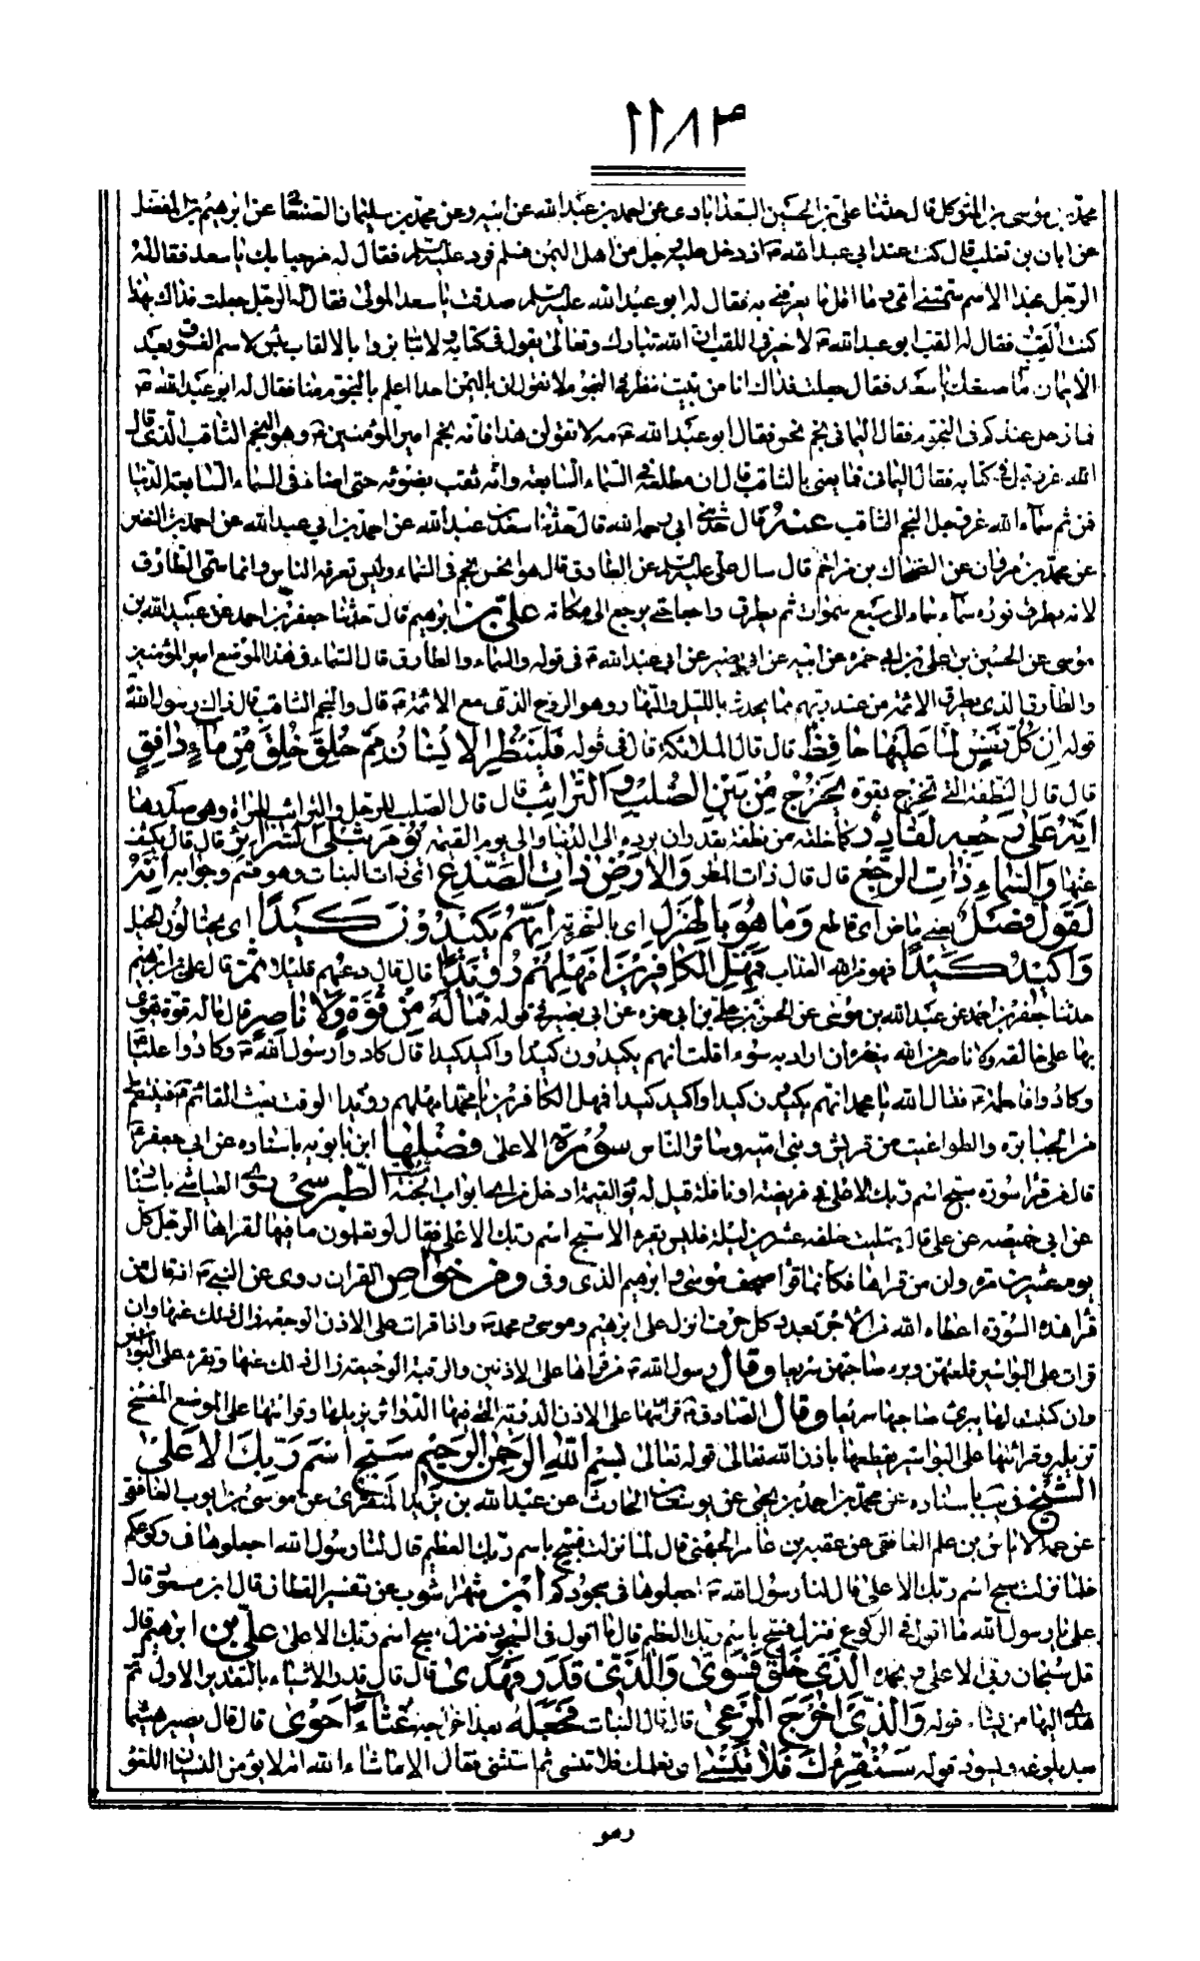 ١١٨٣
محمد بن موسى بن المتوكل قال حدثنا على بن الحسين السعدابادى عن احمد بن عبدالله عن ابيه وعن محمد بن سليمان الصنعانى عن ابرهيم بن الفضل
عن ابان بن تغلب قال كنت عند ابي عبدالله ع اذ دخل عليه رجل من اهل اليمن فسلم فرد عليه السلم فقال له مرحبا بك يا سعد فقال له
الرجل بهذا الاسم سمتني امى وما اقل ما يعرفني به فقال له ابو عبدالله عليه السلم صدقت يا سعد المولى فقال له الرجل جعلت فداك بهذا
كنت القب فقال له القب ابو عبدالله ع لا خير في اللقب ان الله تبارك وتعالى يقول فى كتابه ولا تنابزوا بالالقاب بئس الاسم الفسوق بعد
الايمان ما صنعتك يا سعد فقال جعلت فداك انا من بيت ننظر في النجوم لا نقول ان باليمن احدا اعلم بالنجوم منا فقال له ابو عبدالله ع
فما زحل عندكم فى النجوم فقال اليمانى نجم نحس فقال ابو عبدالله ع مه لا تقولن هذا فانه نجم امير المؤمنين ع وهو النجم الثاقب الذى قال
الله عز وجل في كتابه فقال اليمانى فما يعنى بالثاقب قال ان مطلعه في السماء السابعة وانه ثقب بضوئه حتى اضاء فى السماء السابعة الدنيا
فمن ثم سماه الله عز وجل النجم الثاقب عنه قال حدثني ابى رحمه الله قال حدثنا سعد بن عبدالله عن احمد بن ابي عبدالله عن احمد بن النضر
عن محمد بن مروان عن الضحاك بن مزاحم قال سال على عليه السلم عن الطارق قال هو احسن نجم فى السماء وليس تعرفه الناس وانما سمى الطارق
لانه يطرق نوره سماء سماء الى سبع سموات ثم يطرق راجعا حتى يرجع الى مكانه على بن ابرهيم قال حدثنا جعفر بن احمد عن عبيدالله بن
موسى عن الحسين بن على بن ابي حمزه عن ابيه عن ابي بصير عن ابي عبدالله ع فى قوله والسماء والطارق قال السماء فى هذا الموضع امير المؤمنين
والطارق الذى يطرق الائمة من عند ربهم مما يحدث بالليل والنهار وهو الروح الذى مع الائمة ع قال والنجم الثاقب قال ذاك رسول الله
قوله ان كل نفس لما عليها حافظ قال قال الملائكة قال فى قوله فلينظر الانسان مم خلق خلق من ماء دافق
قال قال النطفة التي تخرج بقوة يخرج من بين الصلب والترائب قال قال الصلب للرجل والترائب للمراة وهى صدرها
انه على رجعه لقادر كما خلقه من نطفة يقدر ان يرده الى الدنيا والى يوم القيمة يوم تبلى السرائر قال قال يكشف
عنها والسماء ذات الرجع قال قال ذات المطر والارض ذات الصدع اى ذات النبات وهو قسم وجوابه انه
لقول فصل يعني ماض اى قاطع وما هو بالهزل اى بالسخرية انهم يكيدون كيدا اى يحتالون الحيل
واكيد كيدا فهو من الله العذاب فمهل الكافرين امهلهم رويدا قال قال دعهم قليلا ثم قال على بن ابرهيم
حدثنا جعفر بن احمد عن عبدالله بن موسى عن الحسن بن على بن ابى حمزه عن ابى بصير في قوله فما له من قوة ولا ناصر قال ما له قوة يقوى
بها على خالقه ولا ناصر من الله ينصره ان اراد به سوء اقلت انهم يكيدون كيدا واكيد كيدا قال كادوا رسول الله ص وكادوا عليا
وكادوا فاطمة ع فقال الله يا محمد انهم يكيدون كيدا واكيد كيدا فمهل الكافرين يا محمد امهلهم رويدا لوقت بعث القائم ع فينتقم
من الجبابرة والطواغيت من قريش وبنى امية وسائر الناس سورة الاعلى فضلها ابن بابويه باسناده عن ابي جعفر ع
قال من قرا سورة سبح اسم ربك الاعلى في فريضة او نافلة قيل له يوم القيمة ادخل من اى ابواب الجنة شئت الطبرسي روى العياشي باسناده
عن ابي خميصه عن على قال صليت خلفه عشرين ليلة فليس يقرء الا سبح اسم ربك الاعلى فقال لو تعلمون ما فيها لقراها الرجل كل
يوم عشرين مرة وان من قراها فكانما قرا صحف موسى وابرهيم الذى وفى ومن خواص القران روى عن النبي ص انه قال من
قرا هذه السورة اعطاه الله من الاجر بعدد كل حرف انزل على ابرهيم وموسى ومحمد ص واذا قرات على الاذن الوجعة زال ذلك عنها وان
قرات على البواسير قلعتهن وبرء صاحبهن سريعا وقال رسول الله ص من قراها على الاذنين والرقبة الوجيعة زال ذلك عنها وتقرء على البواسير
وان كتبت لها برئ صاحبها سريعا وقال الصادق ع قرائتها على الاذن الدوية التي فيها الدوائر يزيلها وقرائتها على الموضع المفسخ
تزيله وقرائتها على البواسير يقطعها باذن الله تعالى قوله تعالى بسم الله الرحمن الرحيم سبح اسم ربك الاعلى
الشيخ فى يب باسناده عن محمد بن احمد بن يحيى عن يوسف بن الحارث عن عبدالله بن يزيد المنقرى عن موسى بن ايوب الغافقى
عن عمه اياس بن عامر الغافقى عن عقبه بن عامر الجهنى قال لما نزلت فسبح باسم ربك العظيم قال لنا رسول الله اجعلوها فى ركوعكم
فلما نزلت سبح اسم ربك الاعلى قال لنا رسول الله ص اجعلوها فى سجودكم ابن شهراشوب عن تفسير القطان قال ابن مسعود قال
على يا رسول الله ما اقول في الركوع فنزل فسبح باسم ربك العظيم قال ما اقول فى السجود فنزل سبح اسم ربك الاعلى على بن ابرهيم قال
قل سبحان ربى الاعلى وبحمده الذى خلق فسوى والذى قدر فهدى قال قال قدر الاشياء بالتقدير الاول ثم
هدى اليها من يشاء قوله والذى اخرج المرعى قال قال النبات فجعله بعد اخراجه غثاء احوى قال قال يصير هشيما
بعد بلوغه ويسود قوله سنقرئك فلا تنسى اى نعلمك فلا تنسى ثم استثنى فقال الا ما شاء الله انه لا يؤمن النسيان اللغو
وهو